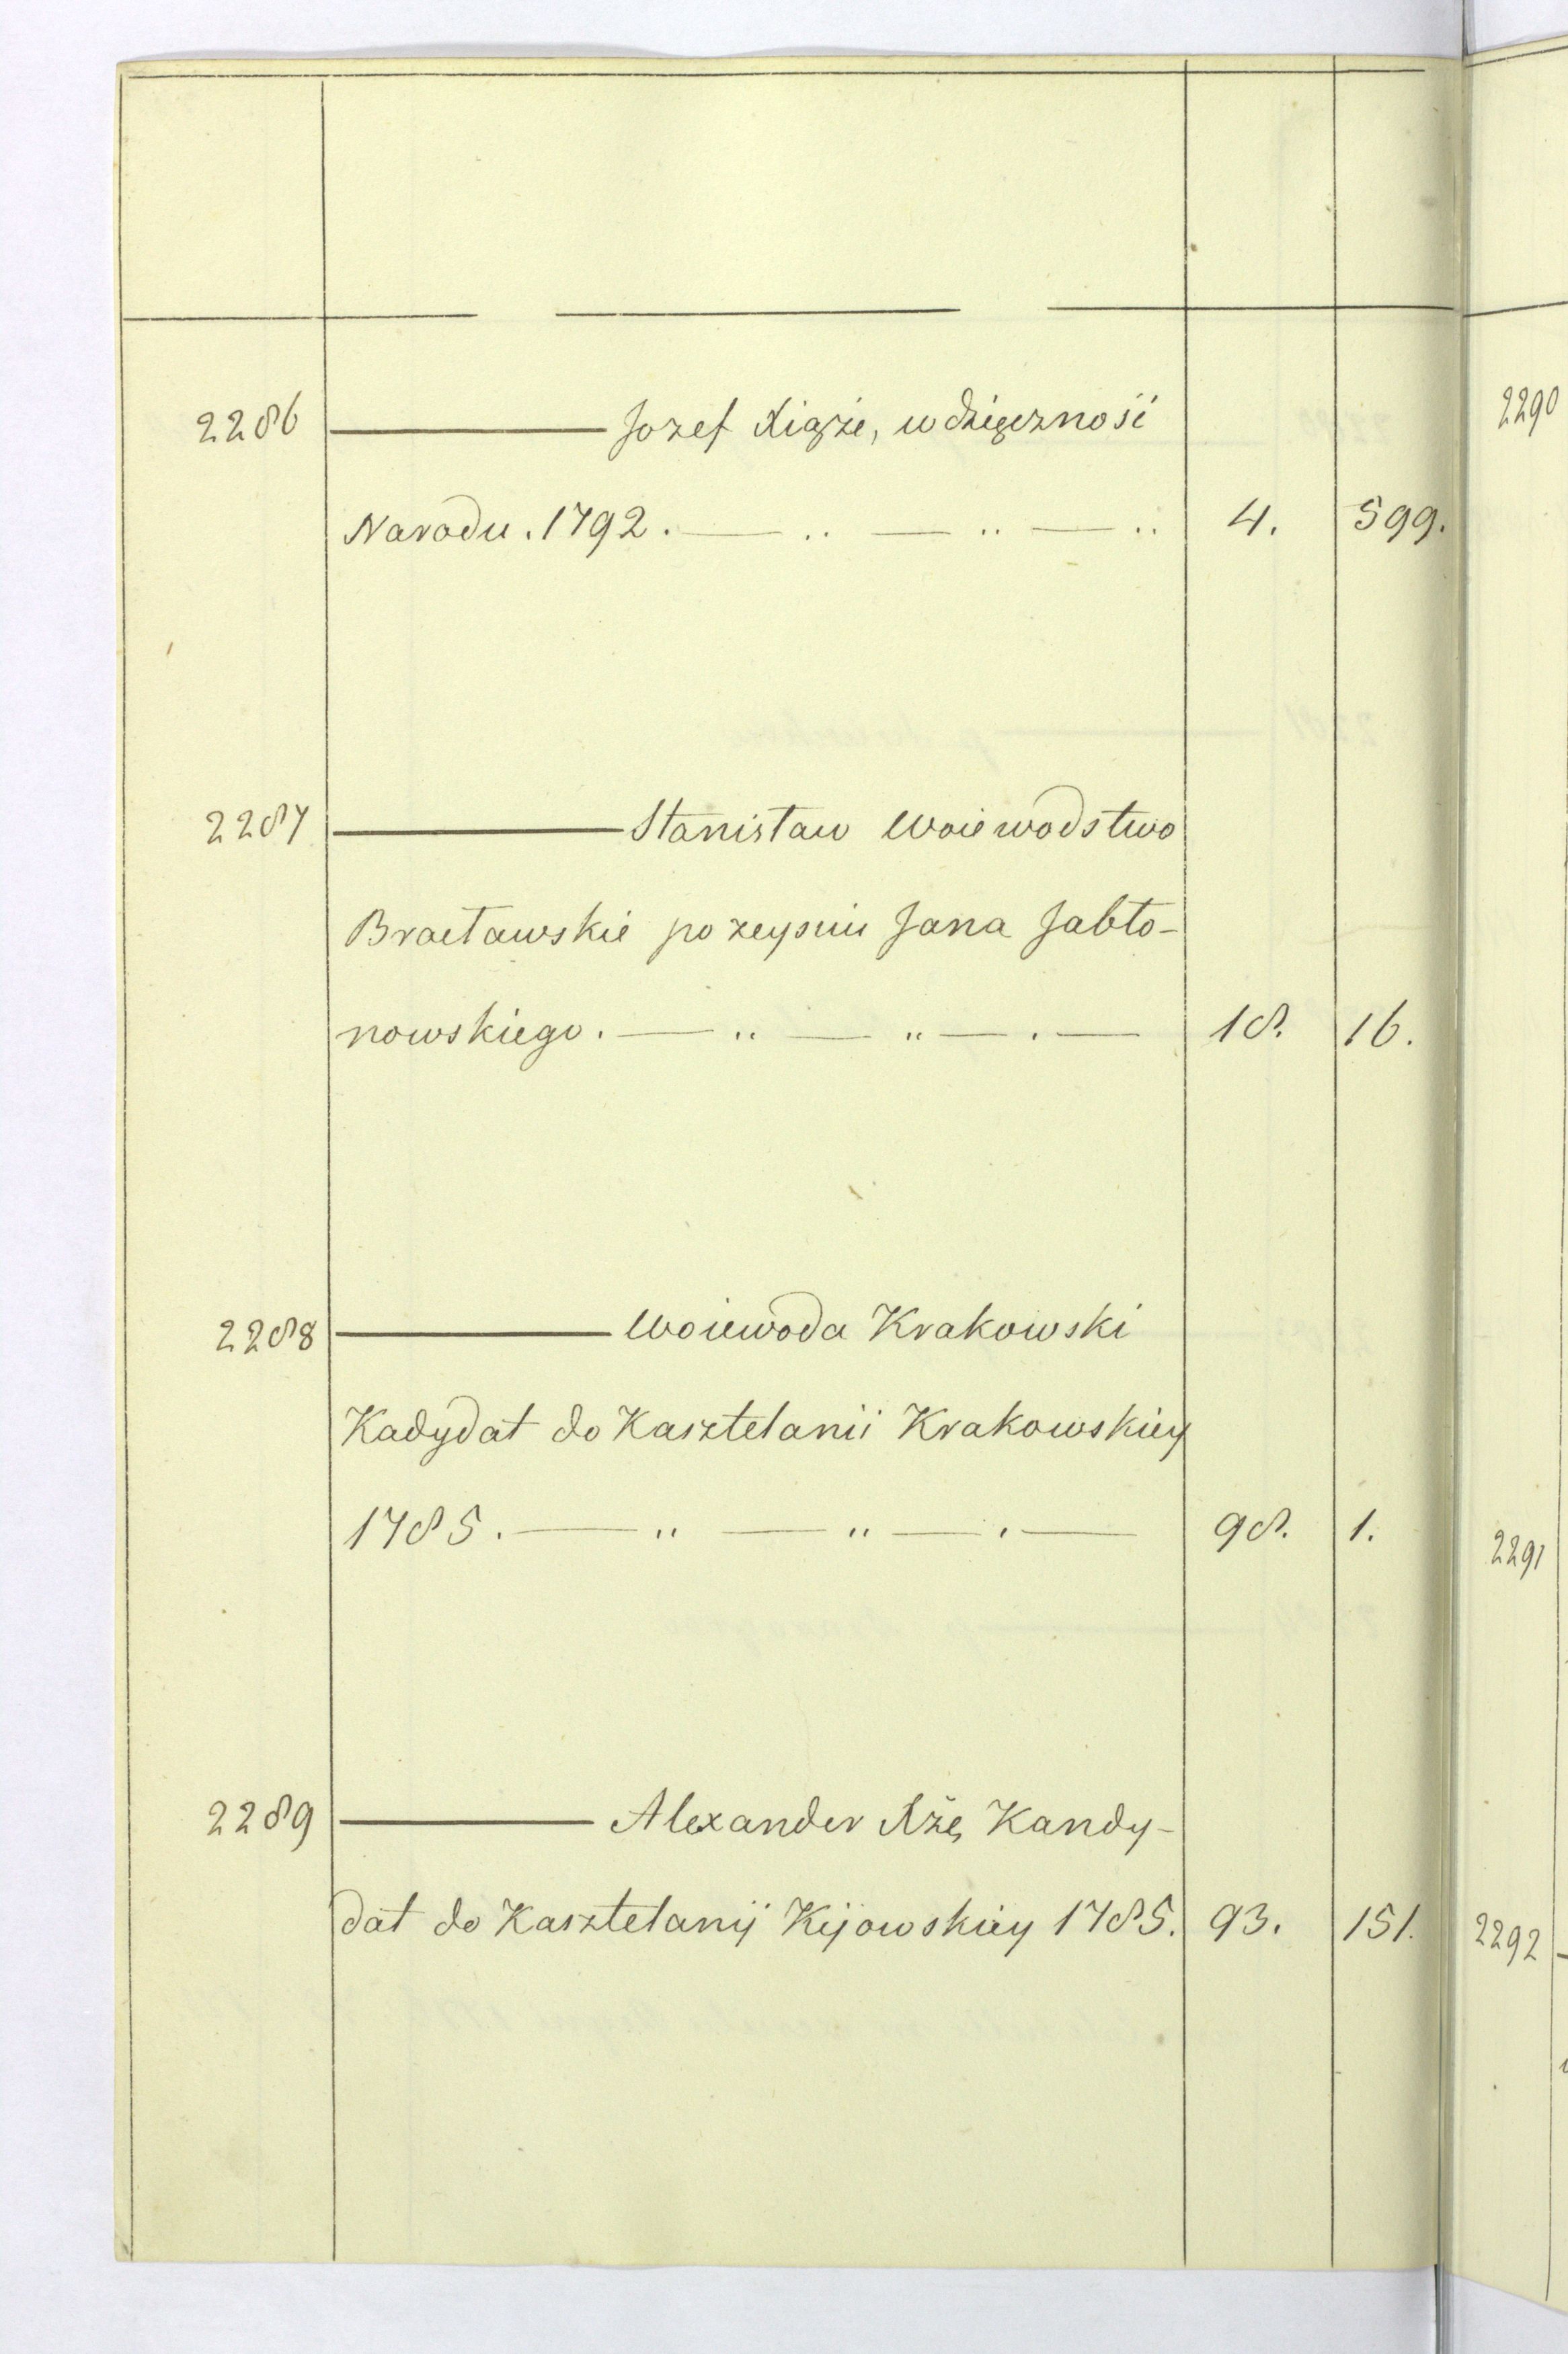 2286 ——— Jozef Xiąże, wdzięczność
Narodu. 1792. — .. — .. — .. 4. 599.
2287 ——— Stanisław Woiewodstwo
Bracławskie po zeyściu Jana Jabło-
nowskiego. — .. — .. — . — 18. 16.
2288 ——— Woiewoda Krakowski
Kadydat do Kasztelanii Krakowskiey
1785. — .. — .. — . — 98. 1.
2289 ——— Alexander Xżę Kandy-
dat do Kasztelanij Kijowskiey 1785. 93. 151.
2290
2291
2292